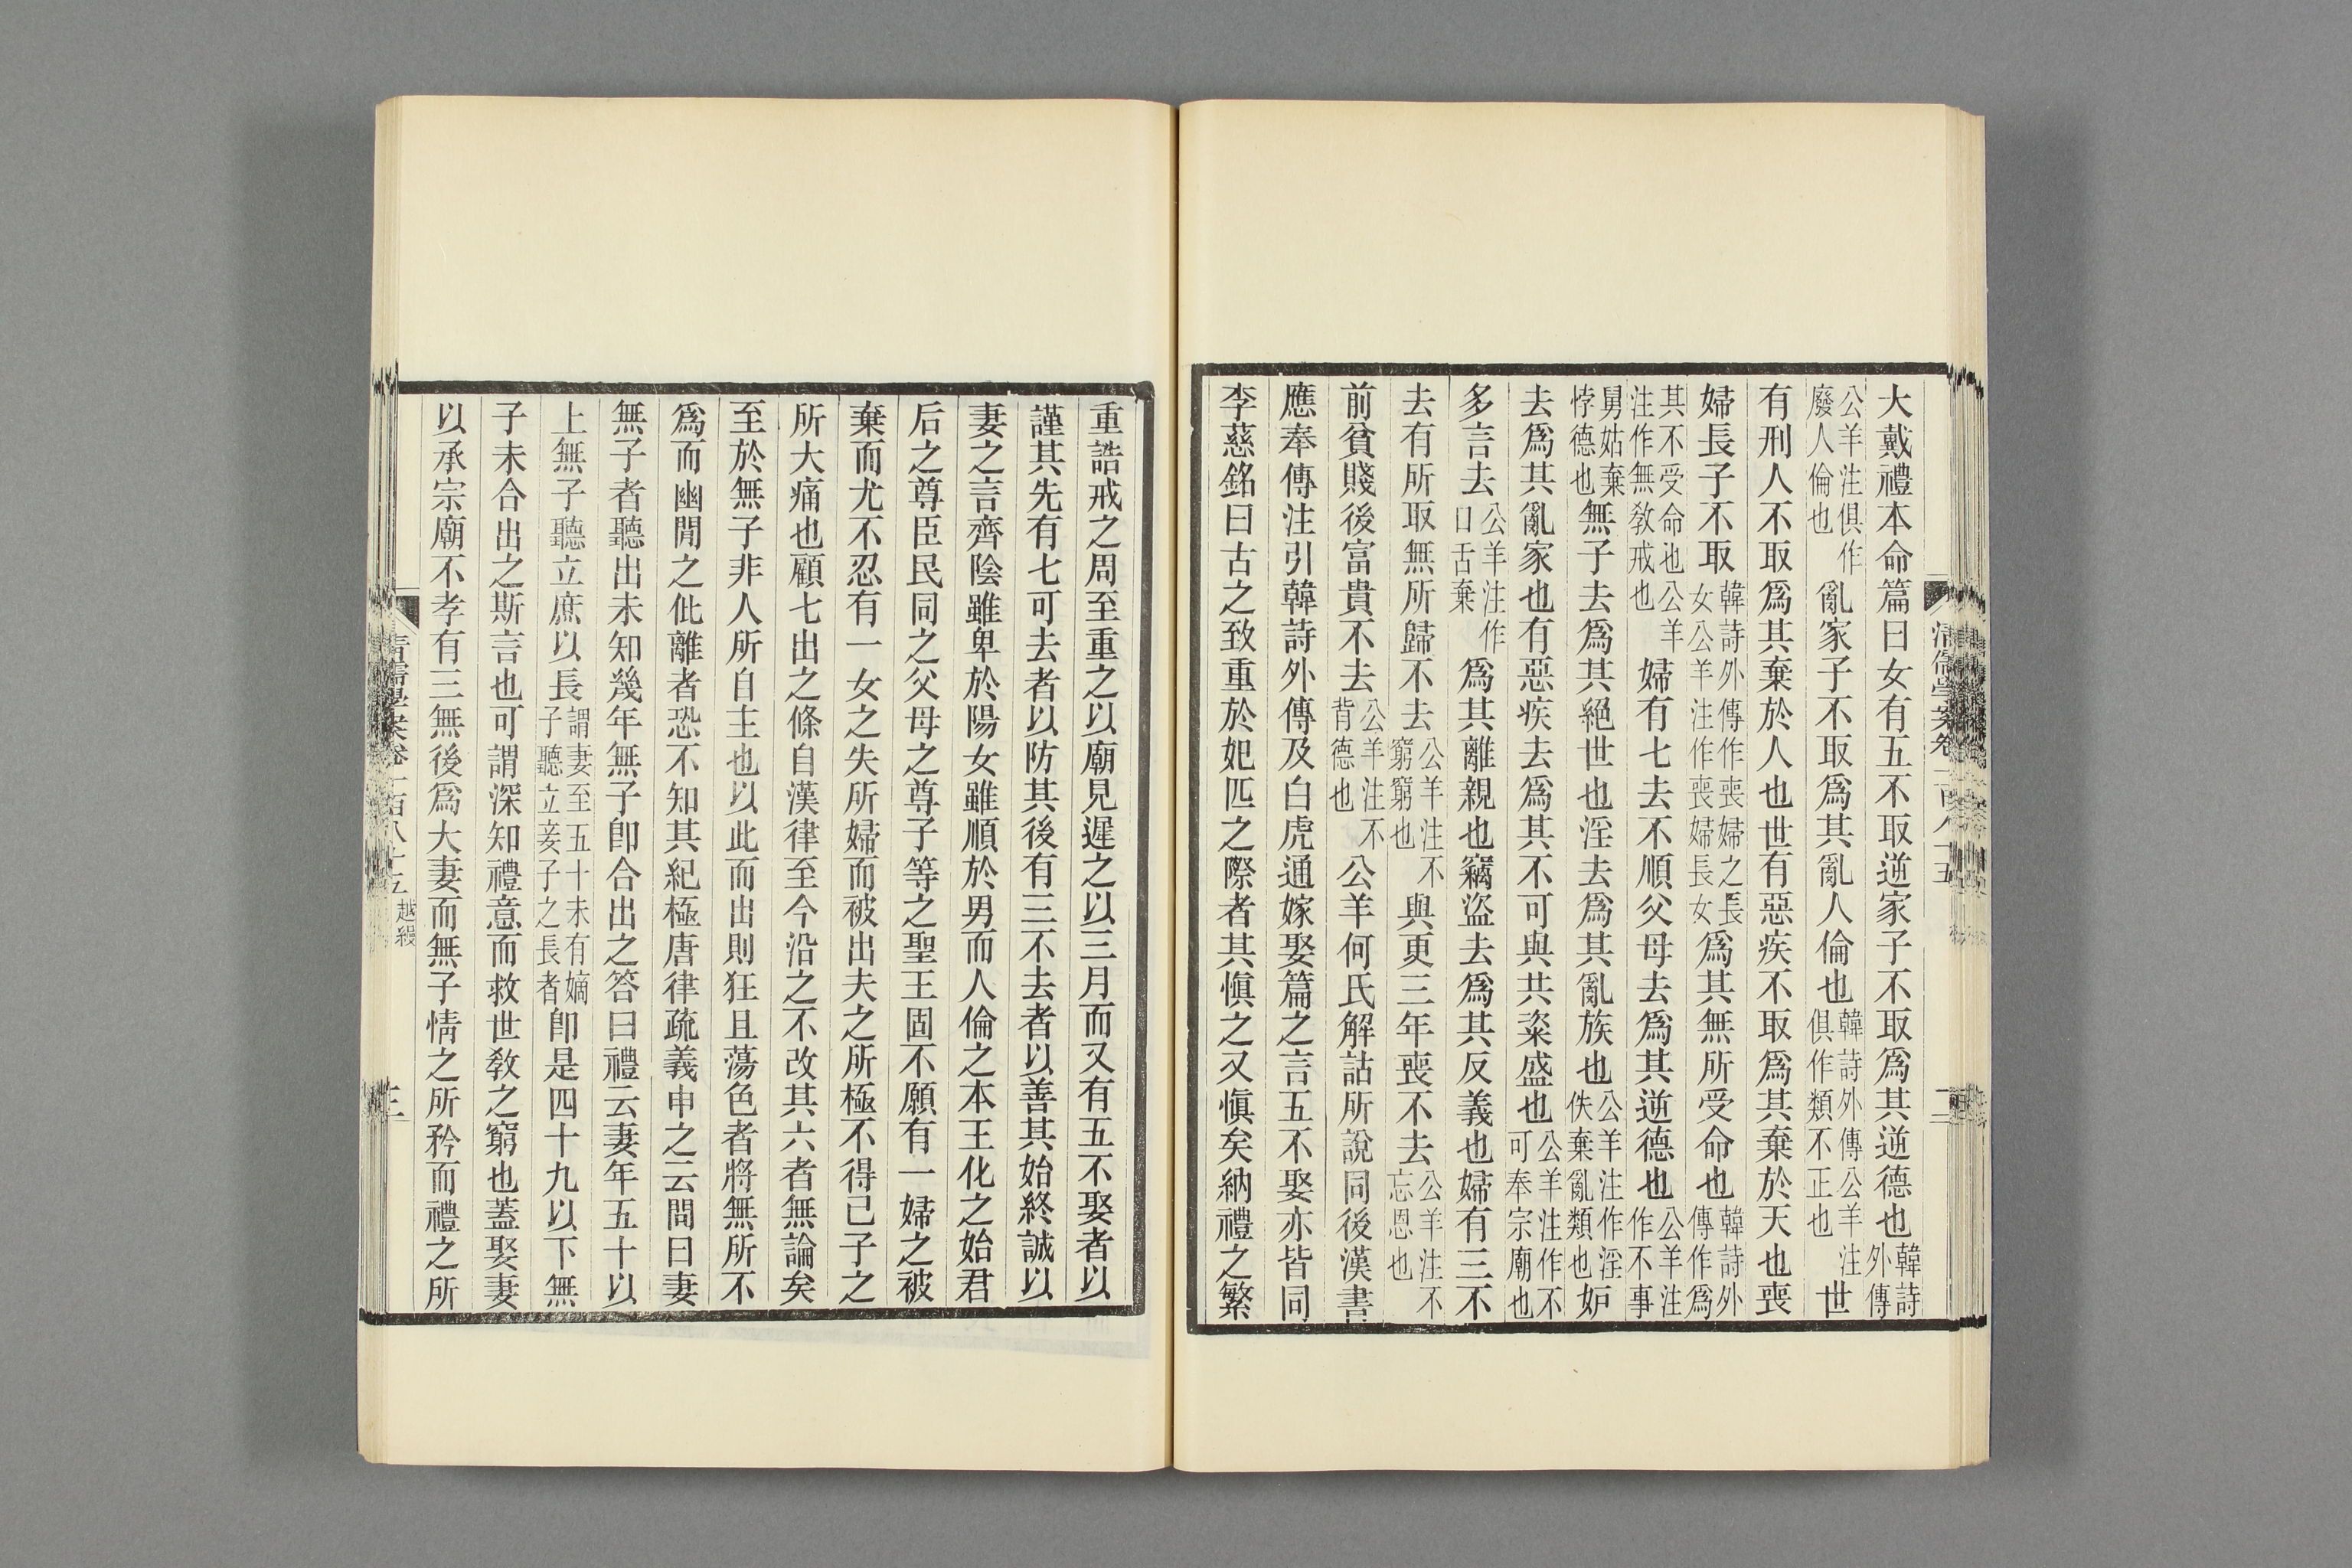 大戴禮本命篇曰女有五不取逆家子不取爲其逆德也韓詩外傳
公羊注俱作廢人倫也亂家子不取爲其亂人倫也韓詩外傳公羊注俱作類不正也世
有刑人不取爲其棄於人也世有惡疾不取爲其棄於天也喪
婦長子不取韓詩外傳作喪婦之長女公羊注作喪婦長女爲其無所受命也韓詩外傳作爲
其不受命也公羊注作無敎戒也婦有七去不順父母去爲其逆德也公羊注作不事
舅姑棄悖德也無子去爲其絕世也淫去爲其亂族也公羊注作淫佚棄亂類也妒
去爲其亂家也有惡疾去爲其不可與共粢盛也公羊注作不可奉宗廟也
多言去公羊注作口舌棄爲其離親也竊盜去爲其反義也婦有三不
去有所取無所歸不去公羊注不窮窮也與更三年喪不去公羊注不忘恩也
前貧賤後富貴不去公羊注不背德也公羊何氏解詁所說同後漢書
應奉傳注引韓詩外傳及白虎通嫁娶篇之言五不娶亦皆同
李慈銘曰古之致重於妃匹之際者其愼之又愼矣納禮之繁
清儒學案卷一百八十五
重誥戒之周至重之以廟見遲之以三月而又有五不娶者以
謹其先有七可去者以防其後有三不去者以善其始終誠以
妻之言齊陰雖卑於陽女雖順於男而人倫之本王化之始君
后之尊臣民同之父母之尊子等之聖王固不願有一婦之被
棄而尤不忍有一女之失所婦而被出夫之所極不得已子之
所大痛也顧七出之條自漢律至今沿之不改其六者無論矣
至於無子非人所自主也以此而出則狂且蕩色者將無所不
爲而幽閒之仳離者恐不知其紀極唐律疏義申之云問曰妻
無子者聽出未知幾年無子卽合出之答曰禮云妻年五十以
上無子聽立庶以長謂妻至五十未有嫡子聽立妾子之長者卽是四十九以下無
子未合出之斯言也可謂深知禮意而救世敎之窮也蓋娶妻
以承宗廟不孝有三無後爲大妻而無子情之所矜而禮之所
清儒學案卷一百八十五 越縵